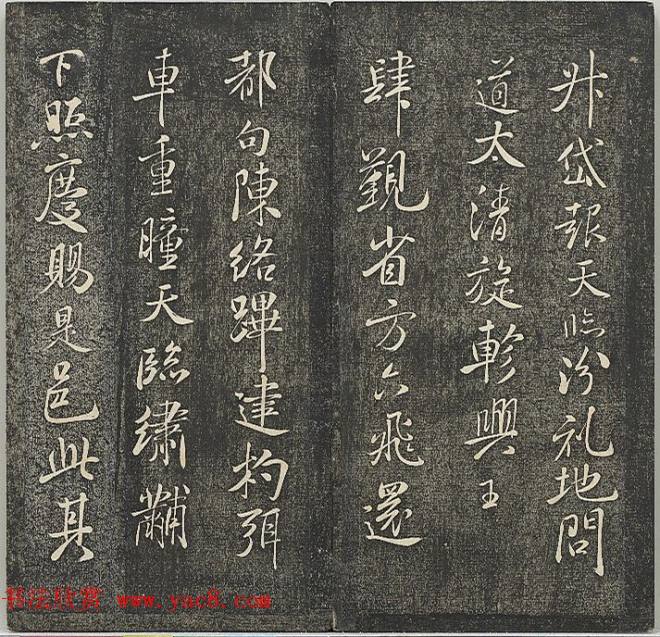 升岱報天臨汾礼地問
道太清旋軫興王
肆覲省方六飛還
都句陳絡蹕建杓弭
車重瞳天臨繡黼
下照慶賜是邑此其
书法欣赏 www.yac8.com